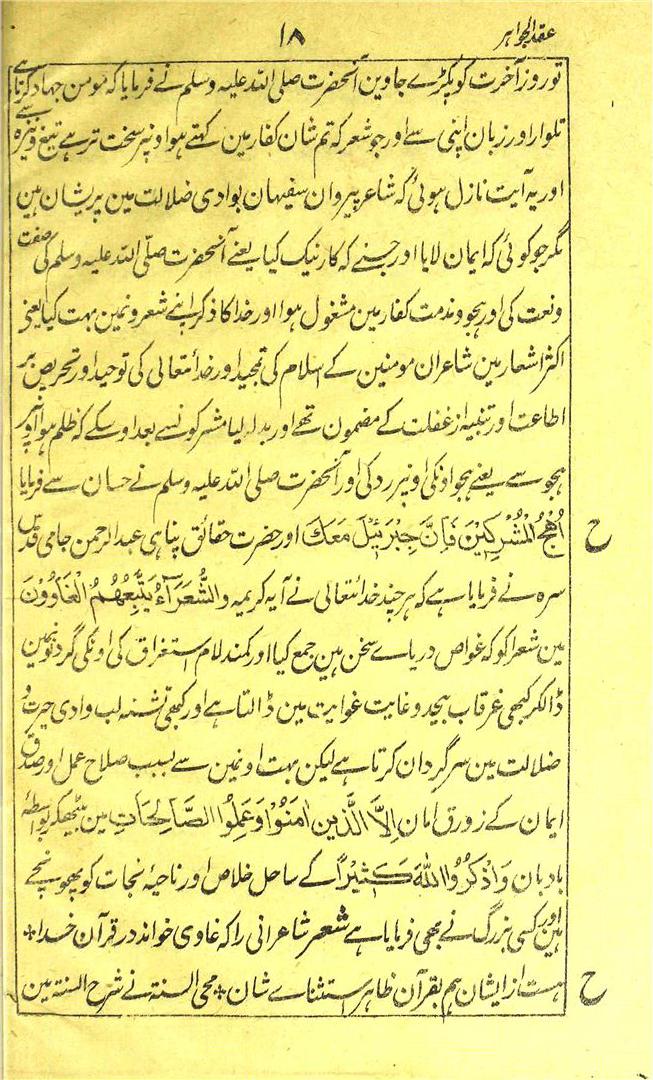 عقد الجواہر
۱۸
تو روز آخرت کو پکڑے جاوین آنحضرت صلی اللہ علیہ وسلم نے فرمایا کہ مومن جہاد کرتا ہے
تلوار اور زبان اپنی سے اور جو شعر کہ تم شان کفار مین کہتے ہو اونپر سخت تر ہے تیغ و نیزہ سے
اور یہ آیت نازل ہوئی کہ شاعر پیروان سفیہان بوادی ضلالت مین پریشان ہین
مگر جو کوئی کہ ایمان لایا اور جسنے کہ کار نیک کیا یعنے آنحضرت صلی اللہ علیہ وسلم کی صفت
و نعت کی اور ہجو و مذمت کفار مین مشغول ہوا اور خدا کا ذکر اپنے شعرونمین بہت کیا یعنی
اکثر اشعار مین شاعران مومنین کے اسلام کی تمجید اور خدائتعالی کی توحید اور تحریص بر
اطاعت اور تنبیہ از غفلت کے مضمون تھے اور بدلہ لیا مشرکونسے بعد اوسکے کہ ظلم ہوا اونپر
ہجو سے یعنے ہجو اونکی اونپر رد کی اور آنحضرت صلی اللہ علیہ وسلم نے حسان سے فرمایا
اُهْجُ الْمُشْرِكِيْنَ فَاِنَّ جِبْرَئِيْلَ مَعَكَ اور حضرت حقائق پناہی عبد الرحمن جامی قدس
ح
سرہ نے فرمایا ہے کہ ہر چند خدائتعالی نے آیہ کریمہ والشُّعَرَآءُ يَتَّبِعُهُمُ الْغَاوُوْنَ
مین شعرا کو کہ غواص دریاے سخن ہین جمع کیا اور کمند لام استغراق کی اونکی گردنونمین
ڈالکر کبھی غرقاب بیحد و غایت غوایت مین ڈالتا ہے اور کبھی تشنہ لب وادی حیرت و
ضلالت مین سرگردان کرتا ہے لیکن بہت اونمین سے بسبب صلاح عمل اور صدق
ایمان کے زورق امان اِلَّا الَّذِيْنَ اٰمَنُوْا وَعَمِلُوا الصَّالِحَاتِ مین بیٹھکر بواسطۂ
بادبان وَاذْكُرُوا اللّٰهَ كَثِيْرًا کے ساحل خلاص اور ناحیۂ نجات کو پھونچے
ہین اور کسی بزرگ نے بھی فرمایا ہے شعر شاعرانی را کہ غاوی خواند در قرآن خدا ٭
ہست از ایشان ہم بقرآن ظاہر استثناے شان ٭ محی السنۃ نے شرح السنۃ مین
ح